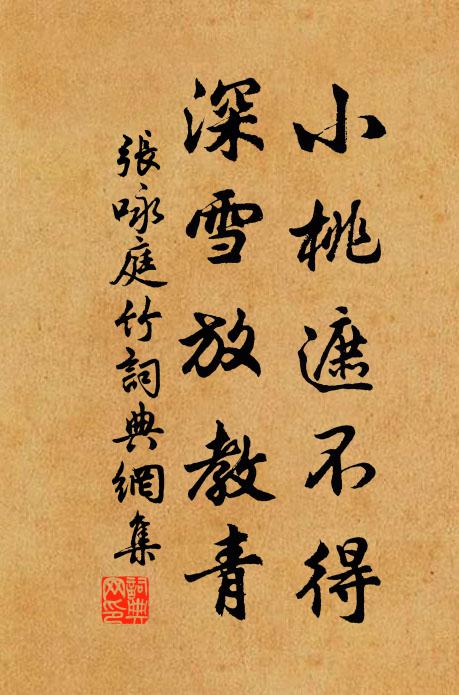 小桃遮不得
深雪放教青
張咏庭竹詞典網集
詞典
网印